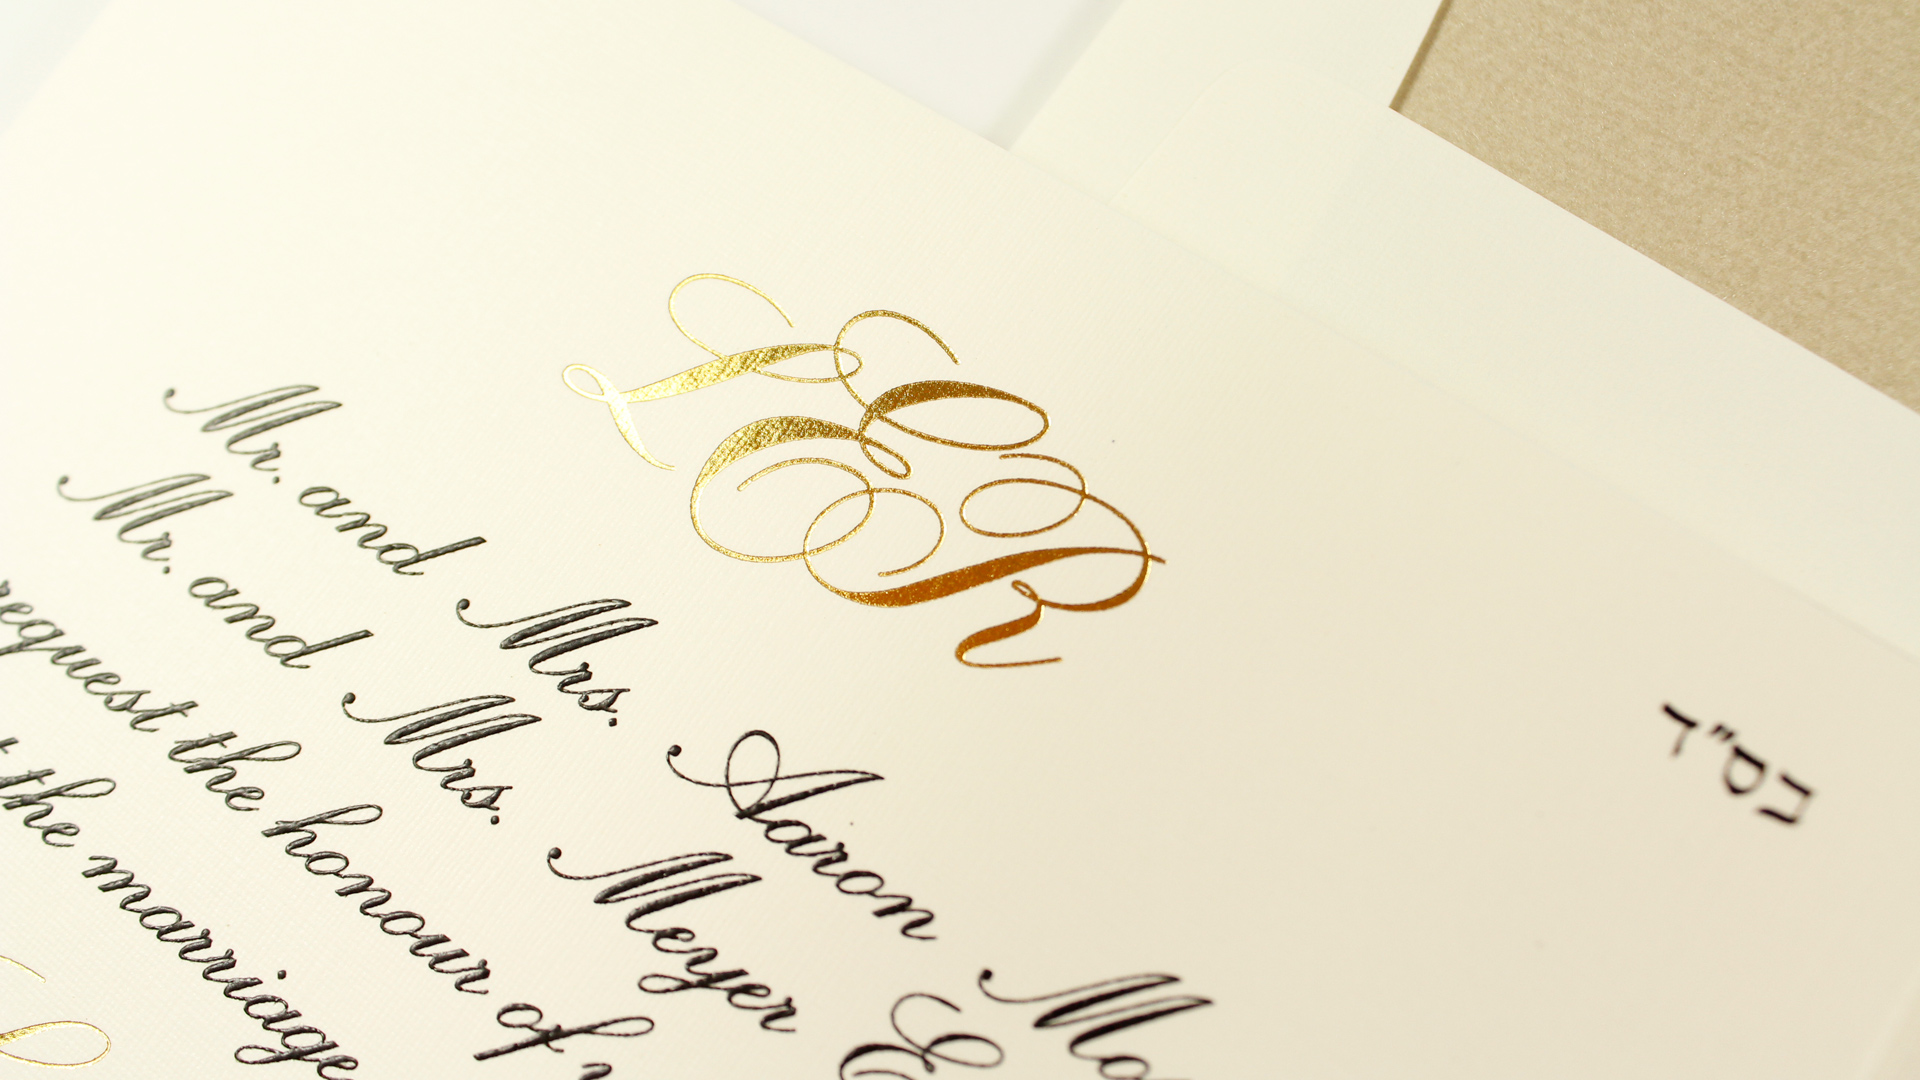 בס"ד
LER
Mr. and Mrs. Aaron
Mr. and Mrs. Meyer
request the honour of
the marriage